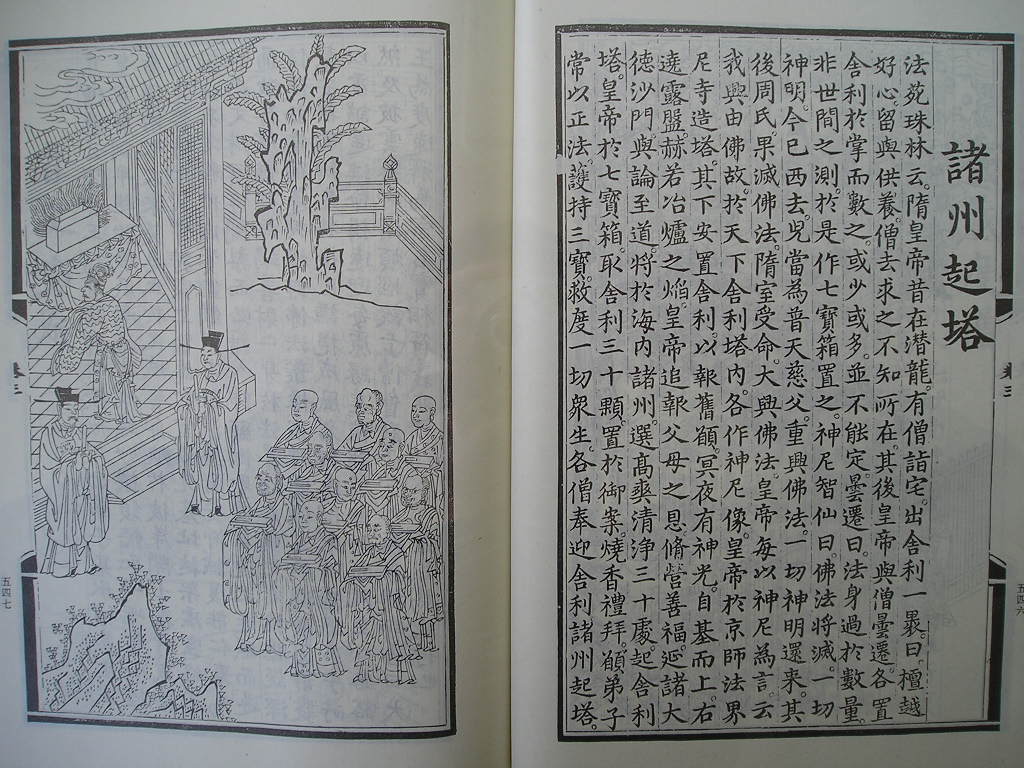 諸州起塔
法苑珠林云。隋皇帝昔在潛龍。有僧詣宅。出舍利一褁。曰。檀越
好心。留與供養。僧去求之不知所在。其後皇帝與僧曇遷。各置
舍利於掌而數之。或少或多。並不能定。曇遷曰。法身過於數量。
非世間之測。於是作七寶箱置之。神尼智仙曰。佛法將滅。一切
神明。今已西去。兒當為普天慈父。重興佛法。一切神明還来。其
後周氏。果滅佛法。隋室受命。大興佛法。皇帝每以神尼為言。云
我興由佛故。於天下舍利塔內。各作神尼像。皇帝於京師法界
尼寺造塔。其下安置舍利。以報舊願。冥夜有神光。自基而上。右
遶露盤。赫若冶爐之焰。皇帝追報父母之恩。脩營善福。延諸大
德沙門。與論至道。將於海內諸州。選高爽清淨三十處。起舍利
塔。皇帝於七寶箱。取舍利三十顆。置於御案。燒香禮拜。願弟子
常以正法。護持三寶。救度一切眾生。各僧奉迎舍利諸州起塔。
卷三
五四六
五四七